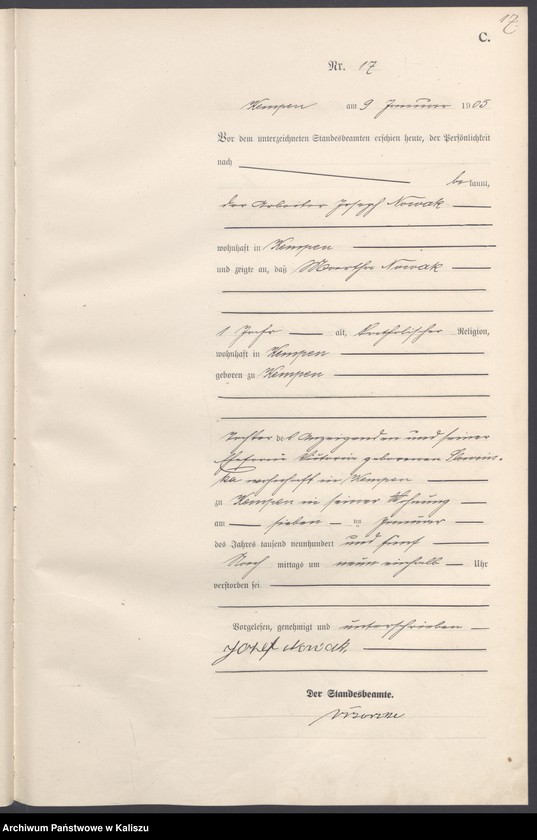 17
C.
Nr. 17
Kempen am 9 Januar 1905
Vor dem unterzeichneten Standesbeamten erschien heute, der Persönlichkeit
nach
bekannt,
der Arbeiter Joseph Nowak
wohnhaft in Kempen
und zeigte an, daß Martha Nowak
1 Jahr alt, katholischer Religion,
wohnhaft in Kempen
geboren zu Kempen
Tochter des Anzeigenden und seiner
Ehefrau geborenen
ka wohnhaft in Kempen
zu Kempen in seiner Wohnung
am sieben Januar
des Jahres tausend neunhundert und fünf
Nach mittags um neun einhalb Uhr
verstorben sei
Vorgelesen, genehmigt und unterschrieben
Józef Nowak
Der Standesbeamte.
Archiwum Państwowe w Kaliszu